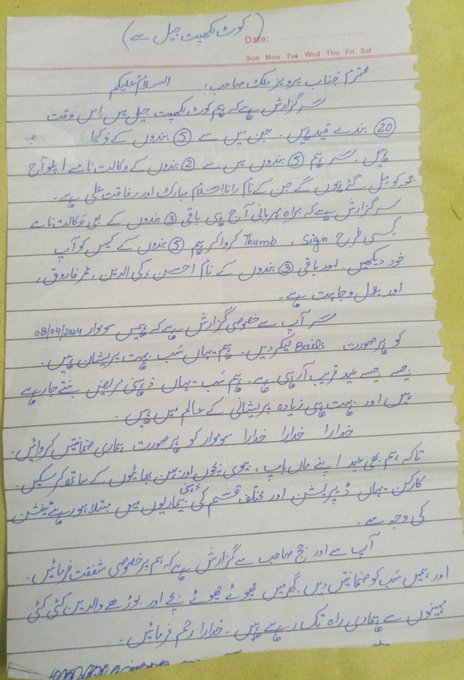 (کوٹ لکھپت جیل سے)
Date:
Sun Mon Tue Wed Thu Fri Sat
محترم جناب پرویز ملک صاحب! السلام علیکم
سر گزارش ہے کہ ہم کوٹ لکھپت جیل میں اس وقت
20 بندے قید ہیں۔ جن میں سے 5 بندوں کے وکیل
ہیں۔ سر ہم 5 بندوں میں سے 2 بندوں کے وکالت نامے آج
مل گئے ہوں گے جن کے نام رانا اسلام مبارک اور رفاقت علی ہے۔
سر گزارش ہے کہ براہ مہربانی آج ہی باقی 3 بندوں کے بھی وکالت نامے
کسی طرح Sign ، Thumb کروا کر ہم 5 بندوں کے کیس کو آپ
خود دیکھیں۔ اور باقی 3 بندوں کے نام احسن زکی الدین، عمر فاروق،
اور بلال وجاہت ہے۔
سر آپ سے خصوصی گزارش ہے کہ ہمیں سوموار 08/04/2024
کو ہر صورت Bails لیکر دیں۔ ہم یہاں سب بہت پریشان ہیں۔
جیسے جیسے عید قریب آ رہی ہے۔ ہم سب یہاں ذہنی مریض بنتے جا رہے
ہیں اور بہت ہی زیادہ پریشانی کے عالم میں ہیں۔
خدارا خدارا خدارا سوموار کو ہر صورت ہماری ضمانتیں کروائیں۔
تاکہ ہم بھی عید اپنے ماں باپ، بیوی بچوں اور بہن بھائیوں کے ساتھ کر سکیں۔
یہاں ڈپریشن اور مختلف قسم کی ذہنی بیماریوں میں مبتلا ہو رہے ٹینشن
کی وجہ سے۔
آپ سے اور جج صاحب سے گزارش ہے کہ ہم پر خصوصی شفقت فرمائیں۔
اور ہمیں سب کو ضمانتیں دیں۔ گھر میں چھوٹے چھوٹے بچے اور بوڑھے والدین کئی کئی
مہینوں سے ہماری راہ تک رہے ہیں۔ خدارا رحم فرمائیں۔